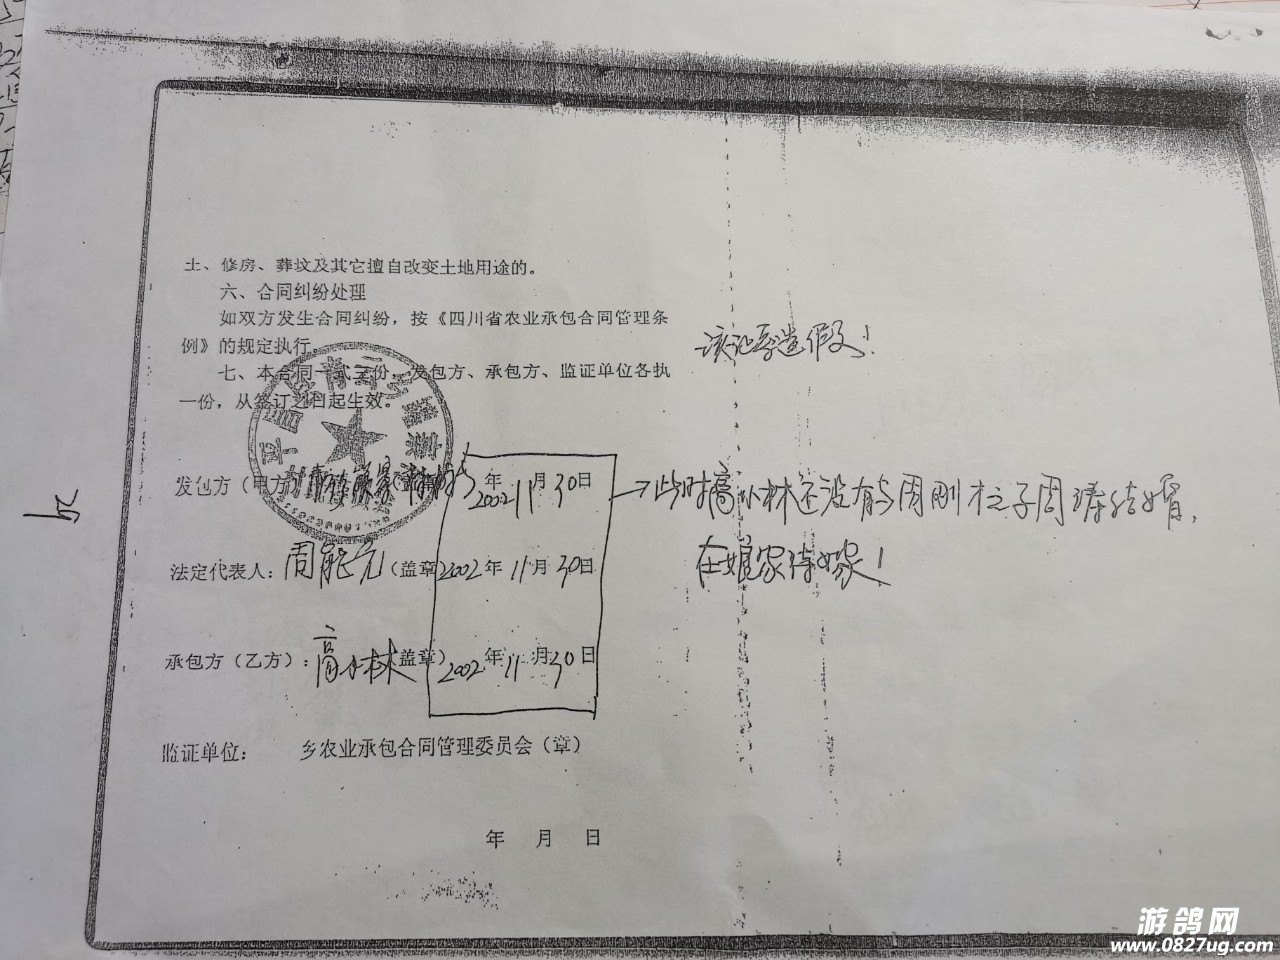 土、修房、葬坟及其它擅自改变土地用途的。
六、合同纠纷处理
如双方发生合同纠纷，按《四川省农业承包合同管理条
例》的规定执行
七、本合同一式三份，发包方、承包方、监证单位各执
一份，从签订之日起生效。
该证系造假！
发包方（甲方 2002年11月30日
→此时高小林还没有与周刚才之子周琫结婚，
在娘家待嫁！
法定代表人：周能元（盖章 2002年11月30日
承包方（乙方）：高小林（盖章）2002年11月30日
监证单位： 乡农业承包合同管理委员会（章）
年 月 日
游鸽网
www.0827ug.com